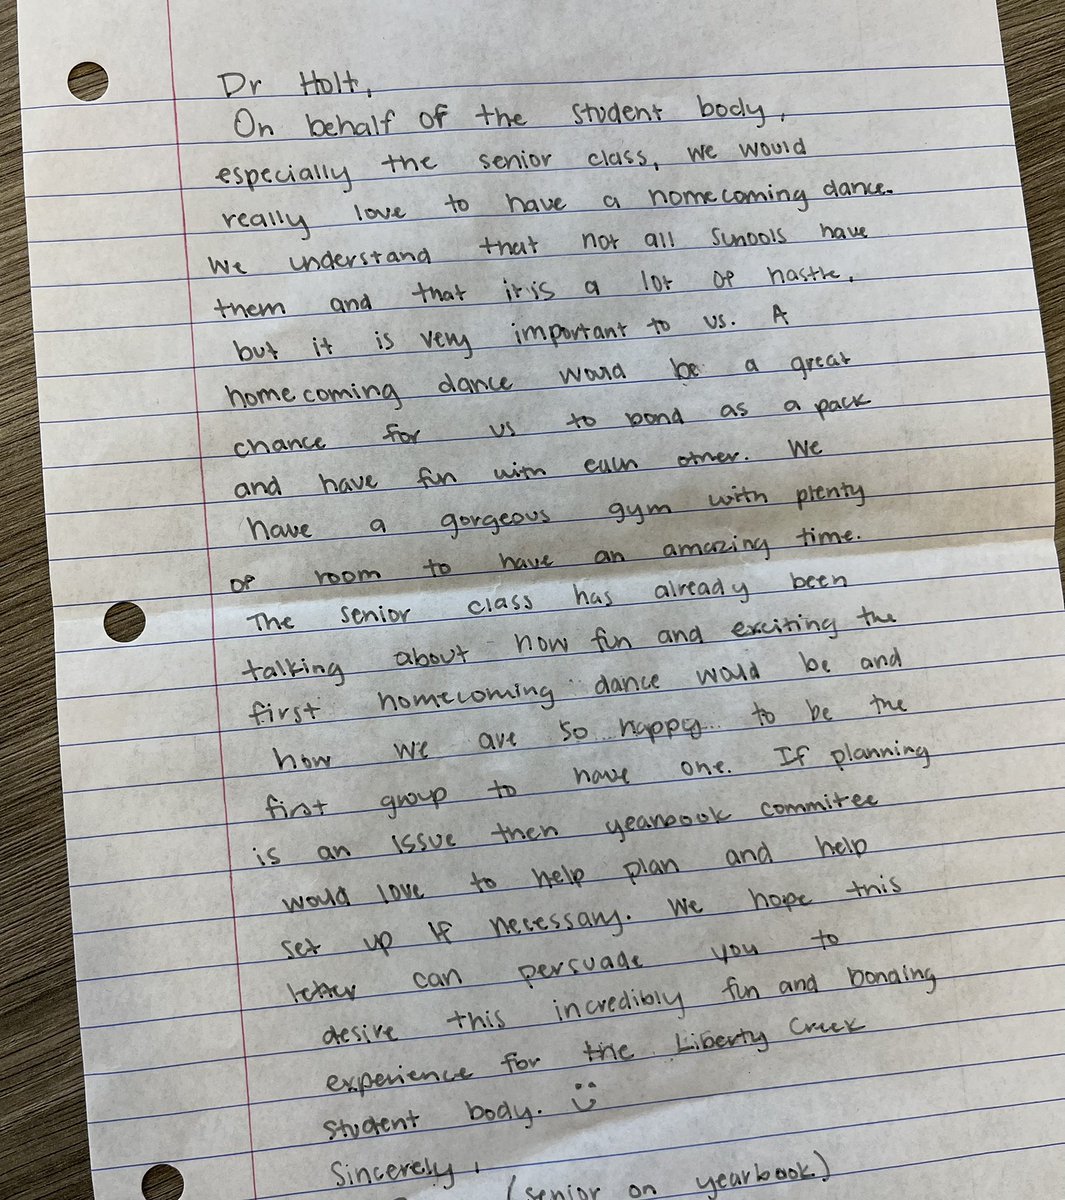 Dr Holt,
On behalf of the student body,
especially the senior class, we would
really love to have a homecoming dance.
We understand that not all schools have
them and that it is a lot of hastle,
but it is very important to us. A
homecoming dance would be a great
chance for us to bond as a pack
and have fun with each other. We
have a gorgeous gym with plenty
of room to have an amazing time.
The senior class has already been
talking about how fun and exciting the
first homecoming dance would be and
how we are so happy to be the
first group to have one. If planning
is an issue then yearbook commitee
would love to help plan and help
set up if necessary. We hope this
letter can persuade you to
desire this incredibly fun and bonding
experience for the Liberty Creek
student body. :)
Sincerely,
(senior on yearbook)